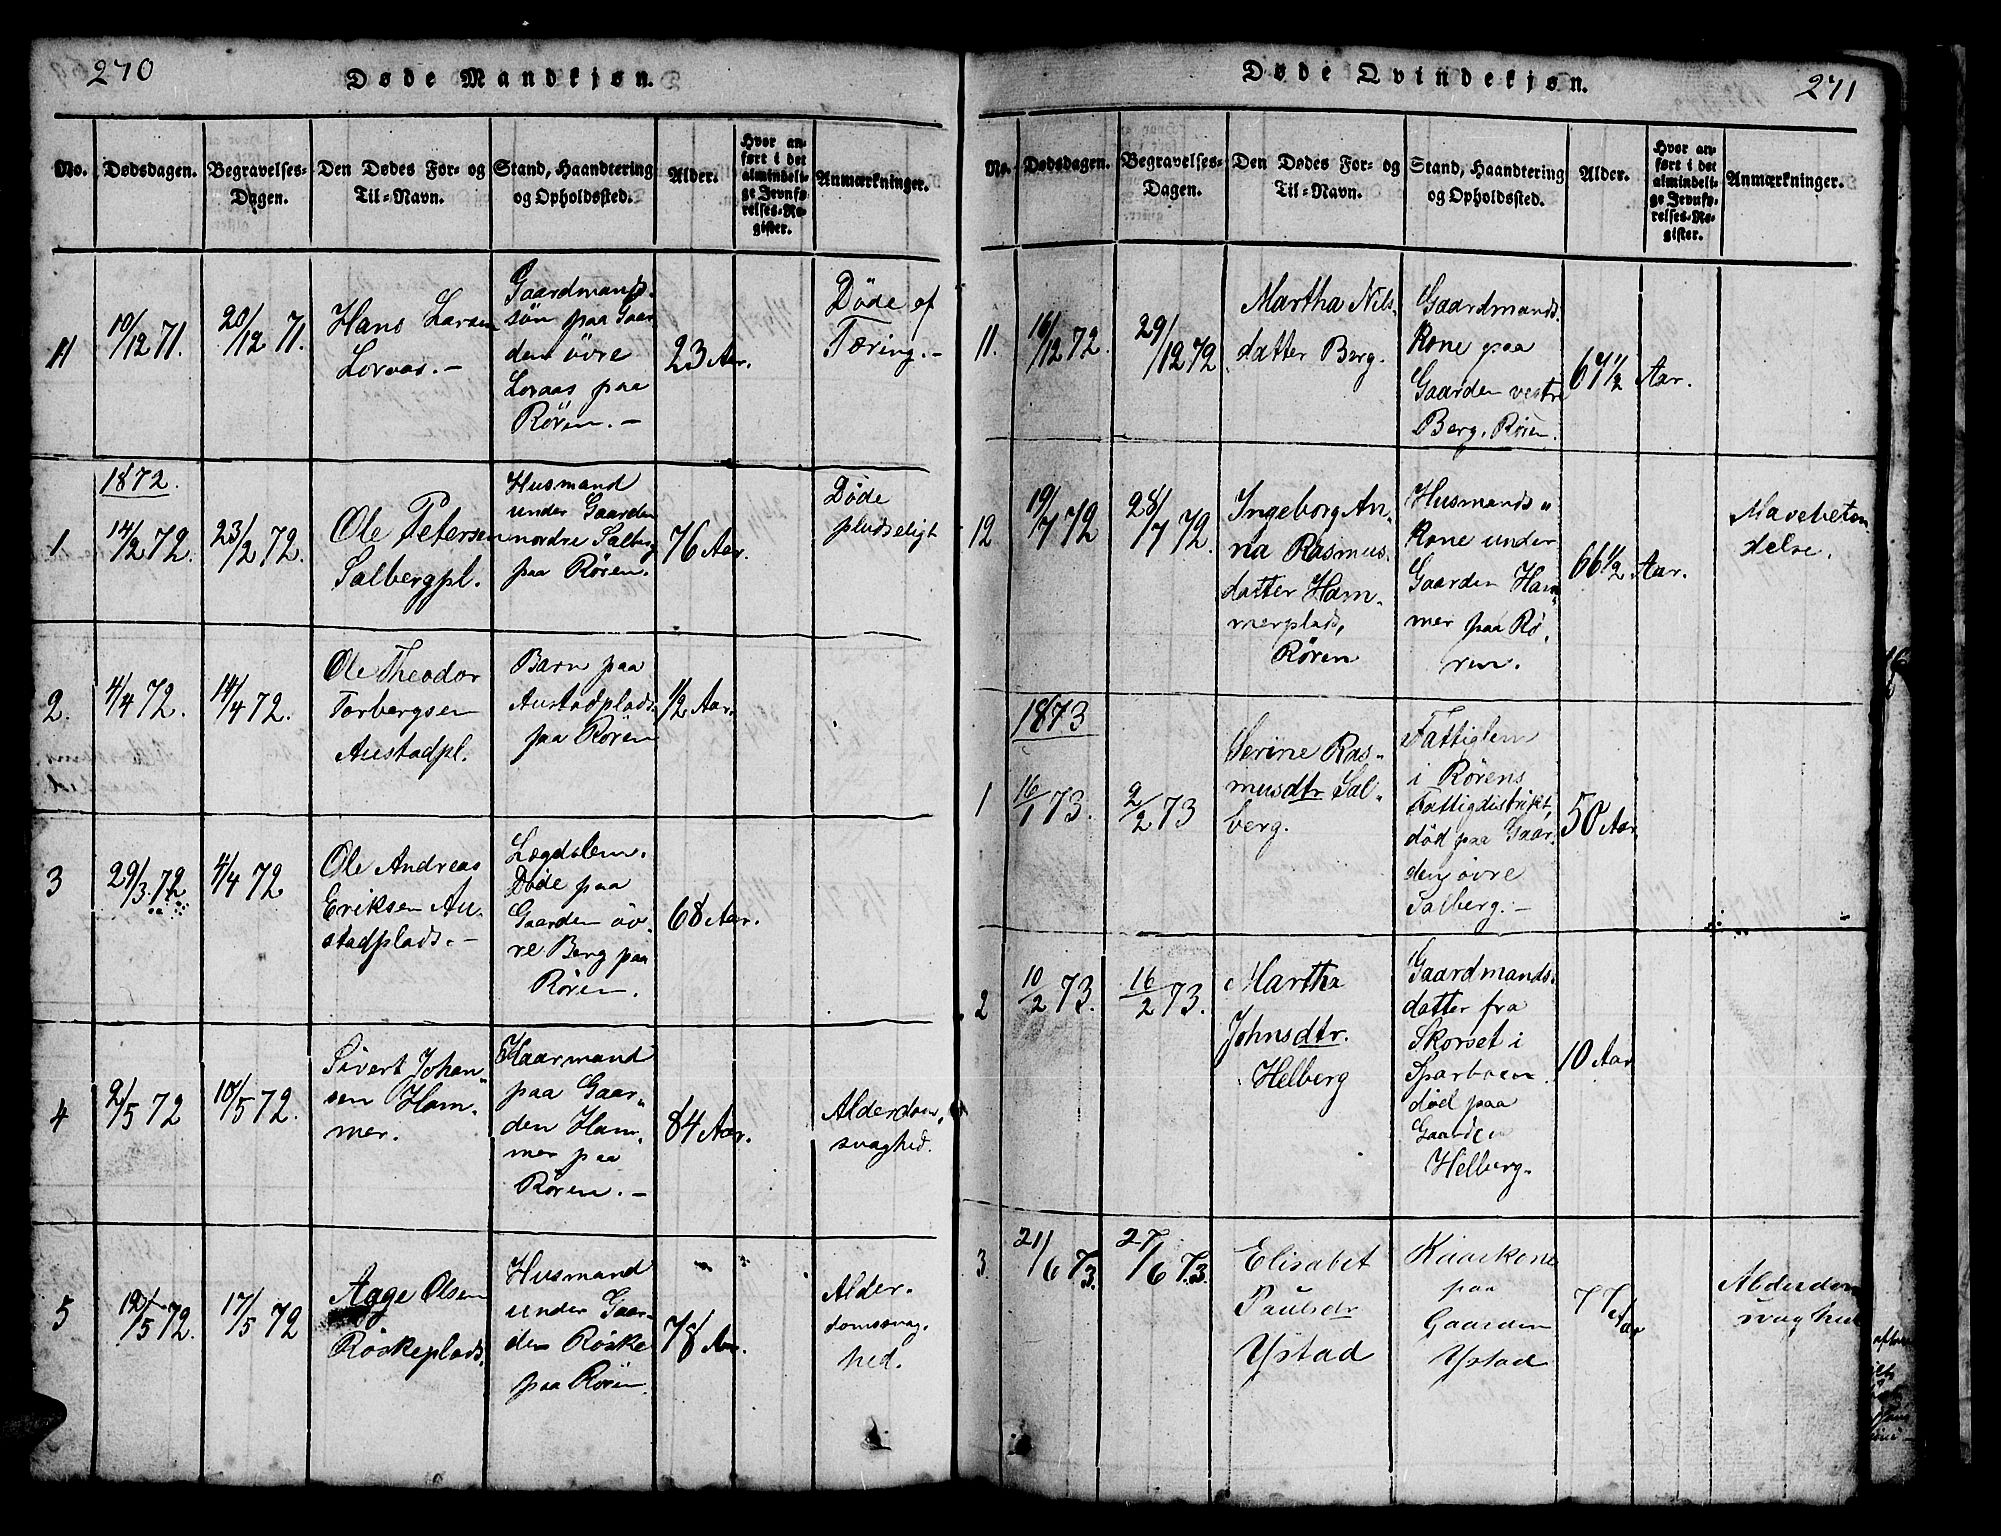 270
Døde Mandkjøn.
No.
Dødsdagen.
Begravelses-
Dagen.
Den Dødes For- og
Til-Navn.
Stand, Haandtering
og Opholdssted.
Alder.
Hvor an-
ført i det
almindeli-
ge Jevnfø-
relses-Re-
gister.
Anmærkninger.
11
10/12 71.
20/12 71.
Hans Larsen
Loraas.-
Gaardmands-
søn paa Gaar
den övre
Loraas paa
Rören.-
23 Aar.
Døde af
Tæring.-
1872.
1
14/2 72.
23/2 72.
Ole Petersen
Salbergpl.
Husmand
under Gaarden
nordre Salberg
paa Røren.
76 Aar.
Døde
pludseligt
2.
4/4 72.
14/4 72.
Ole Theodor
Torbergsen
Austadpl.
Barn paa
Austadplads
paa Røren
1/2 Aar.
3
29/3 72
4/4 72
Ole Andreas
Eriksen Au-
stadplads.-
Lægdslem.
Døde paa
Gaarden öv-
re Berg paa
Røren.
68 Aar.
4
2/5 72
10/5 72.
Sivert Johan"
sen Ham-
mer.
Kaarmand
paa Gaar"
den Ham-
mer paa
Røren.-
84 Aar.
Alderdoms
svaghed.
5
12/5 72.
17/5 72
Aage Olsen
Röskeplads.
Husmand
under Gaar-
den Röske
paa Røren
78 Aar.
Alder-
domssvag-
hed.
Døde Qvindekjøn.
271
No.
Dødsdagen.
Begravelses-
Dagen.
Den Dødes For- og
Til-Navn.
Stand, Haandtering
og Opholdssted.
Alder.
Hvor an-
ført i det
almindeli-
ge Jevnfø-
relses-Re-
gister.
Anmærkninger.
11.
16/12 72.
29/12 72
Martha Nils-
datter Berg.
Gaardmands-
kone paa
Gaarden vestre
Berg, Røren.
67 1/2 Aar.
12
19/7 72
28/7 72.
Ingeborg An-
na Rasmus-
datter Ham-
merplads,
Røren
Husmands"
kone under
Gaarden Ham"
mer paa Rø-
ren.
66 1/2 Aar.
Mavebetæn
delse.
1873
1
16/1 73.
2/2 73
Serine Ras"
musdtr Sal"
berg.
Fattiglem
i Rørens
Fattigdistrikt,
död paa Gaar-
den övre
Salberg.-
50 Aar
2
10/2 73.
16/2 73.
Martha
Johnsdtr.
Helberg
Gaardmands-
datter fra
Skorset i
Sparboen.
död paa
Gaarden
Helberg.
10 Aar
3.
21/6 73.
27/6 73.
Elisabet
Paulsdr
Ystad
Kaarkone
paa
Gaarden
Ystad
77 Aar
Alderdom
svaghed